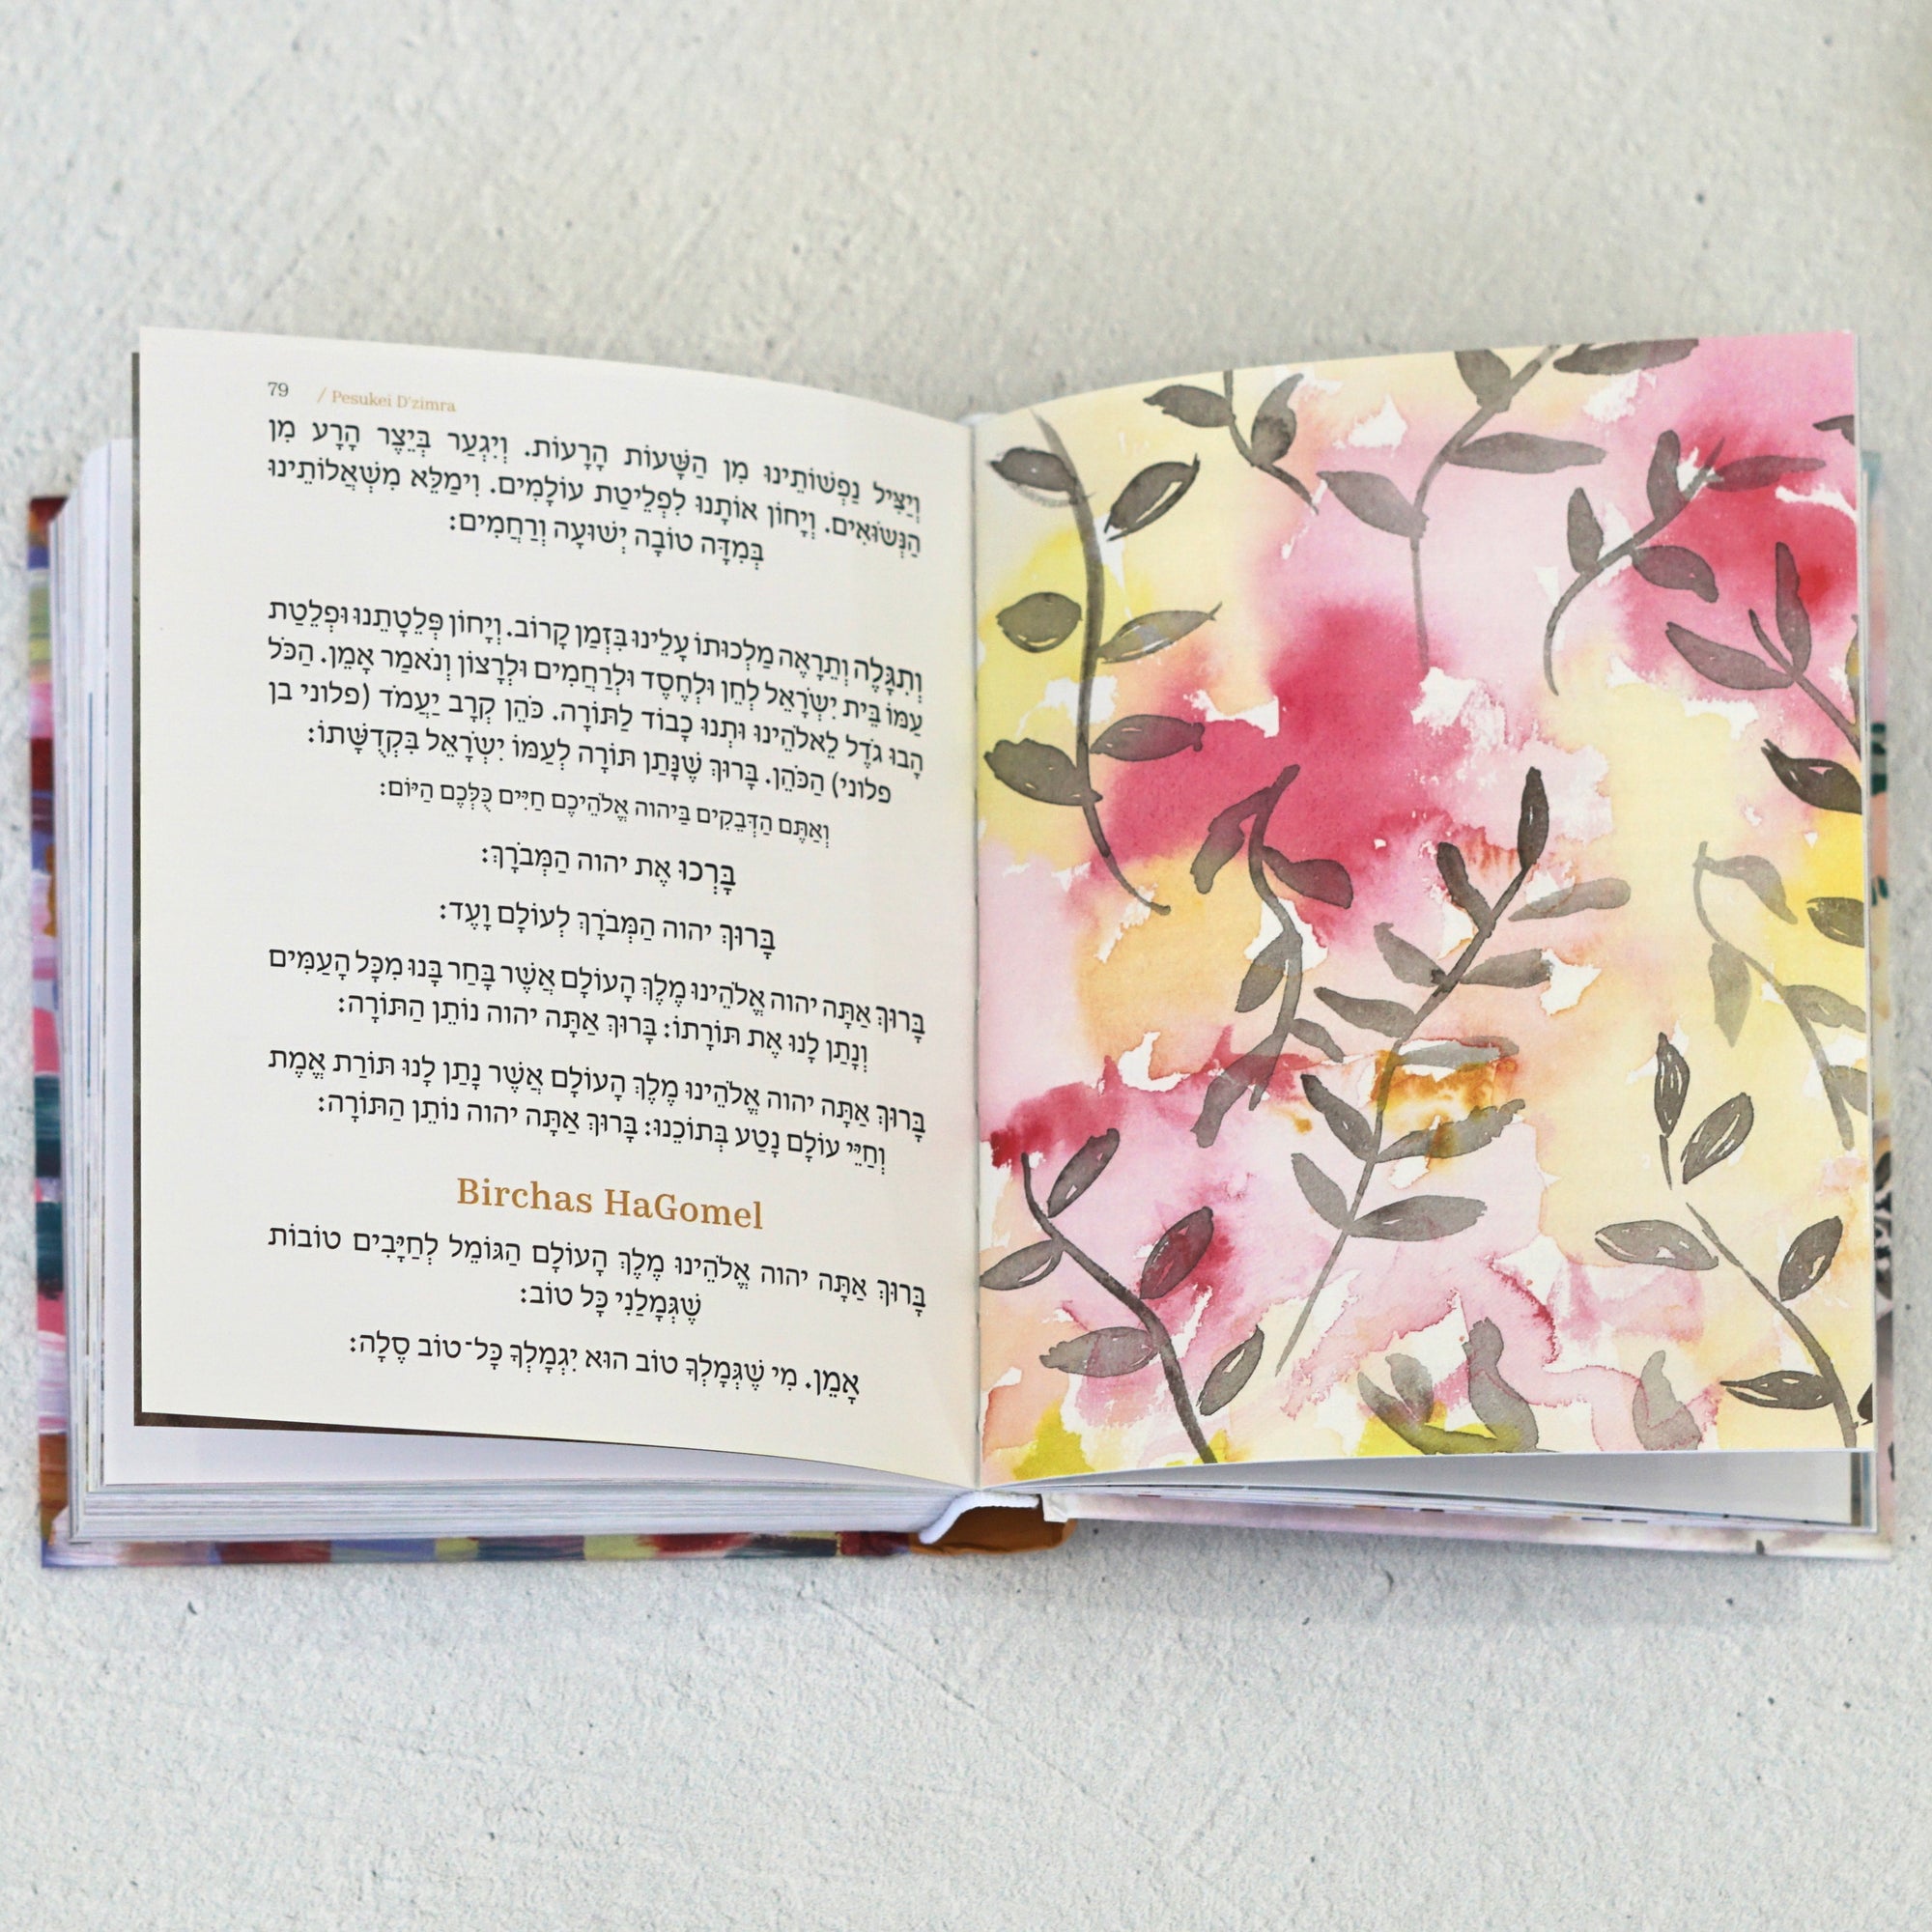 79 / Pesukei D'zimra
וְיַצִּיל נַפְשׁוֹתֵינוּ מִן הַשָּׁעוֹת הָרָעוֹת. וְיִגְעַר בְּיֵצֶר הָרָע מִן
הַנְּשׂוּאִים. וְיָחוֹן אוֹתָנוּ לִפְלֵיטַת עוֹלָמִים. וִימַלֵּא מִשְׁאֲלוֹתֵינוּ
בְּמִדָּה טוֹבָה יְשׁוּעָה וְרַחֲמִים:
וְתִגָּלֶה וְתֵרָאֶה מַלְכוּתוֹ עָלֵינוּ בִּזְמַן קָרוֹב. וְיָחוֹן פְּלֵטָתֵנוּ וּפְלֵטַת
עַמּוֹ בֵּית יִשְׂרָאֵל לְחֵן וּלְחֶסֶד וּלְרַחֲמִים וּלְרָצוֹן וְנֹאמַר אָמֵן. הַכֹּל
הָבוּ גֹדֶל לֵאלֹהֵינוּ וּתְנוּ כָבוֹד לַתּוֹרָה. כֹּהֵן קְרָב יַעֲמֹד (פלוני בן
פלוני) הַכֹּהֵן. בָּרוּךְ שֶׁנָּתַן תּוֹרָה לְעַמּוֹ יִשְׂרָאֵל בִּקְדֻשָּׁתוֹ:
וְאַתֶּם הַדְּבֵקִים בַּיהוה אֱלֹהֵיכֶם חַיִּים כֻּלְּכֶם הַיּוֹם:
בָּרְכוּ אֶת יהוה הַמְּבֹרָךְ:
בָּרוּךְ יהוה הַמְּבֹרָךְ לְעוֹלָם וָעֶד:
בָּרוּךְ אַתָּה יהוה אֱלֹהֵינוּ מֶלֶךְ הָעוֹלָם אֲשֶׁר בָּחַר בָּנוּ מִכָּל הָעַמִּים
וְנָתַן לָנוּ אֶת תּוֹרָתוֹ: בָּרוּךְ אַתָּה יהוה נוֹתֵן הַתּוֹרָה:
בָּרוּךְ אַתָּה יהוה אֱלֹהֵינוּ מֶלֶךְ הָעוֹלָם אֲשֶׁר נָתַן לָנוּ תּוֹרַת אֱמֶת
וְחַיֵּי עוֹלָם נָטַע בְּתוֹכֵנוּ: בָּרוּךְ אַתָּה יהוה נוֹתֵן הַתּוֹרָה:
Birchas HaGomel
בָּרוּךְ אַתָּה יהוה אֱלֹהֵינוּ מֶלֶךְ הָעוֹלָם הַגּוֹמֵל לְחַיָּבִים טוֹבוֹת
שֶׁגְּמָלַנִי כָּל טוֹב:
אָמֵן. מִי שֶׁגְּמָלְךָ טוֹב הוּא יִגְמָלְךָ כָּל־טוֹב סֶלָה: